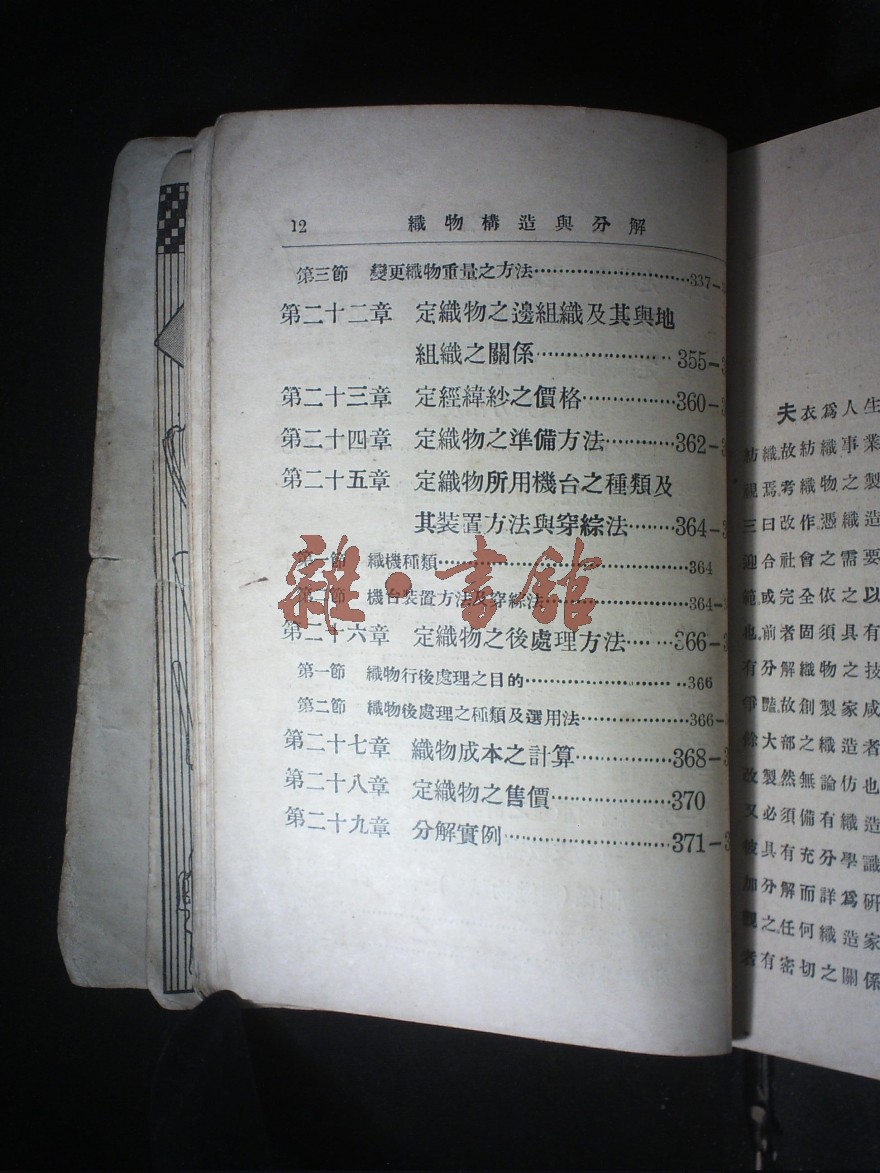 12 織物構造與分解
第三節 變更織物重量之方法……………………337-
第二十二章 定織物之邊組織及其與地
組織之關係……………355-3
第二十三章 定經緯紗之價格…………360-3
第二十四章 定織物之準備方法………362-3
第二十五章 定織物所用機台之種類及
其裝置方法與穿綜法………364-3
第一節 織機種類……………………………364
第二節 機台裝置方法及穿綜法……………364-
第二十六章 定織物之後處理方法……366-3
第一節 織物行後處理之目的……………………366
第二節 織物後處理之種類及選用法……………366-
第二十七章 織物成本之計算…………368-3
第二十八章 定織物之售價……………370
第二十九章 分解實例…………………371-3
雜·書館
夫衣爲人生
紡織.故紡織事業
視焉.考織物之製
三曰改作.憑織造
迎合社會之需要
範.或完全依之以
也.前者固須具有
有分解織物之技
爭豔.故創製家咸
餘大部之織造者
改製.然無論仿也
又必須備有織造
彼具有充分學識
加分解而詳爲研
觀之.任何織造家
者有密切之關係